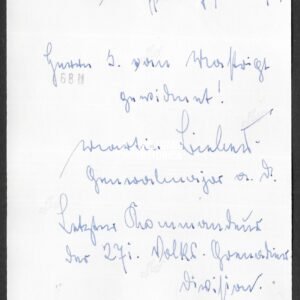 Herrn S. von
6811
gewidmet!
Martin Bieber.
Generalmajor a. D.
Letzter Kommandeur
der 271. Volks-Grenadier
Division.